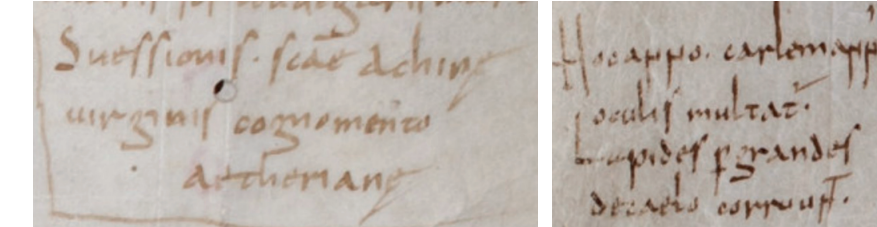 Suessionis. scae aching
uirginis cognomento
aetheriane
Hoc appo. carlemapp
oculis multat.
Lapides pgrandes
decaelo corrour.